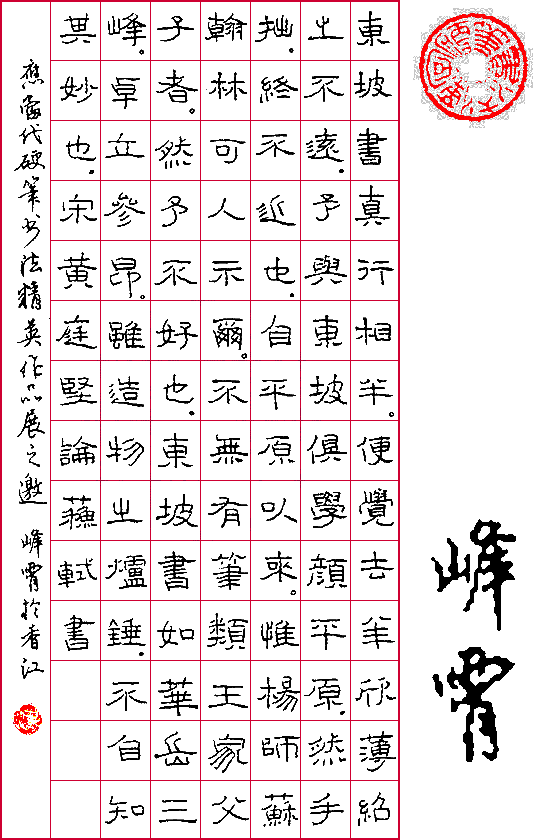 東坡書真行相半。便覺去羊欣薄紹
之不遠.予與東坡俱學顔平原.然手
拙.終不近也.自平原以來。惟楊師蘇
翰林可人示爾。不無有筆類王家父
子者。然予不好也.東坡書如華岳三
峰。卓立參昂。雖造物之爐錘.不自知
其妙也.宋黃庭堅論蘇軾書
應當代硬筆书法精英作品展之邀 峰霄於香江
峰霄